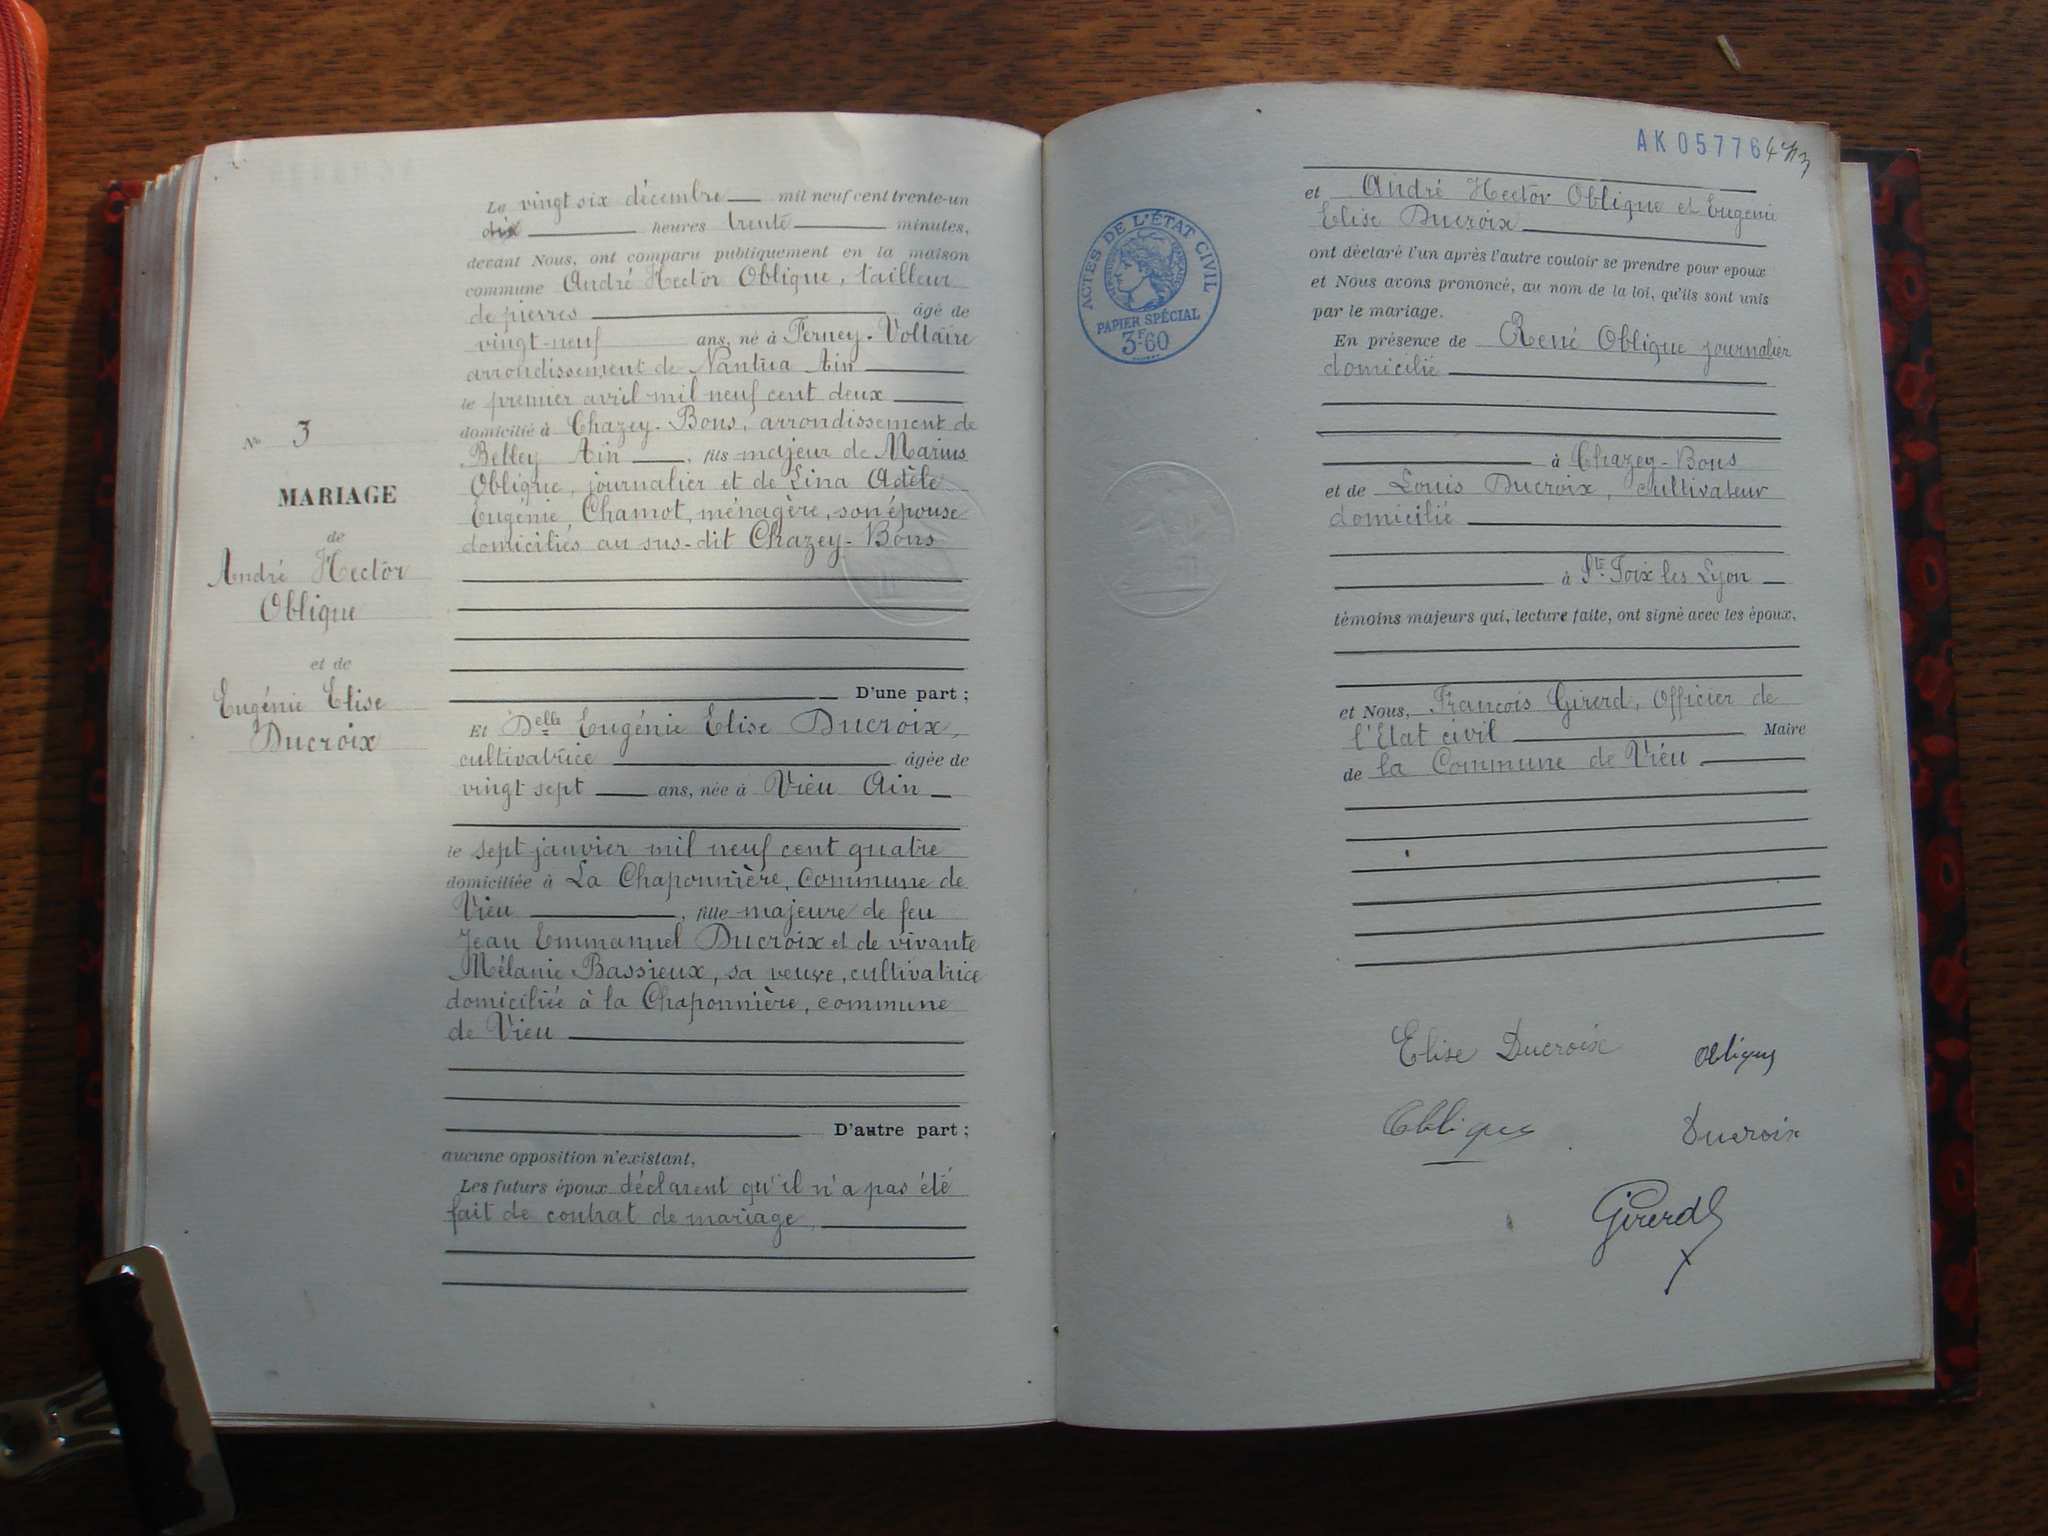 Le vingt six décembre mil neuf cent trente-un
dix heures trente minutes,
devant Nous, ont comparu publiquement en la maison
commune André Hector Oblique, tailleur
de pierres âgé de
vingt-neuf ans, né à Ferney-Voltaire
arrondissement de Nantua Ain
le premier avril mil neuf cent deux
domicilié à Chazey-Bons, arrondissement de
Belley Ain, fils majeur de Marius
Oblique, journalier et de Lina Adèle
Eugénie Chamot, ménagère, son épouse
domiciliés au sus-dit Chazey-Bons
D'une part ;
Et Delle Eugénie Elise Ducroix,
cultivatrice âgée de
vingt sept ans, née à Vieu Ain
le sept janvier mil neuf cent quatre
domiciliée à La Chaponnière, commune de
Vieu, fille majeure de feu
Jean Emmanuel Ducroix et de vivante
Mélanie Bassieux, sa veuve, cultivatrice
domiciliée à la Chaponnière, commune
de Vieu
D'autre part ;
aucune opposition n'existant,
Les futurs époux déclarent qu'il n'a pas été
fait de contrat de mariage,
No 3
MARIAGE
de
André Hector
Oblique
et de
Eugénie Elise
Ducroix
AK 05776
ACTES DE L'ÉTAT CIVIL
PAPIER SPÉCIAL
3F.60
et André Hector Oblique et Eugénie
Elise Ducroix
ont déclaré l'un après l'autre vouloir se prendre pour epoux
et Nous avons prononcé, au nom de la loi, qu'ils sont unis
par le mariage.
En présence de René Oblique journalier
domicilié
à Chazey-Bons
et de Louis Ducroix, cultivateur
domicilié
à Ste Foix les Lyon
témoins majeurs qui, lecture faite, ont signé avec les époux,
et Nous, François Girerd, Officier de
l'Etat civil Maire
de la Commune de Vieu
Elise Ducroix Oblique
Oblique Ducroix
Girerd